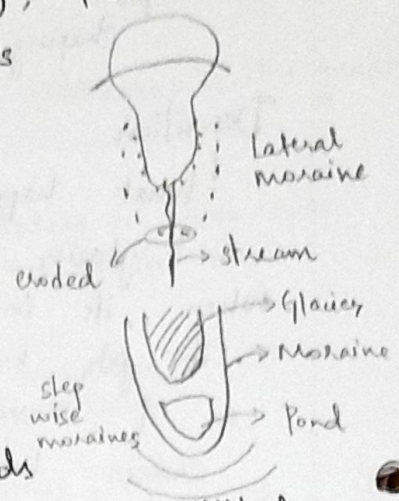 s
Lateral
moraine
eroded
stream
Glacier
Moraine
step
wise
moraines
Pond
ds